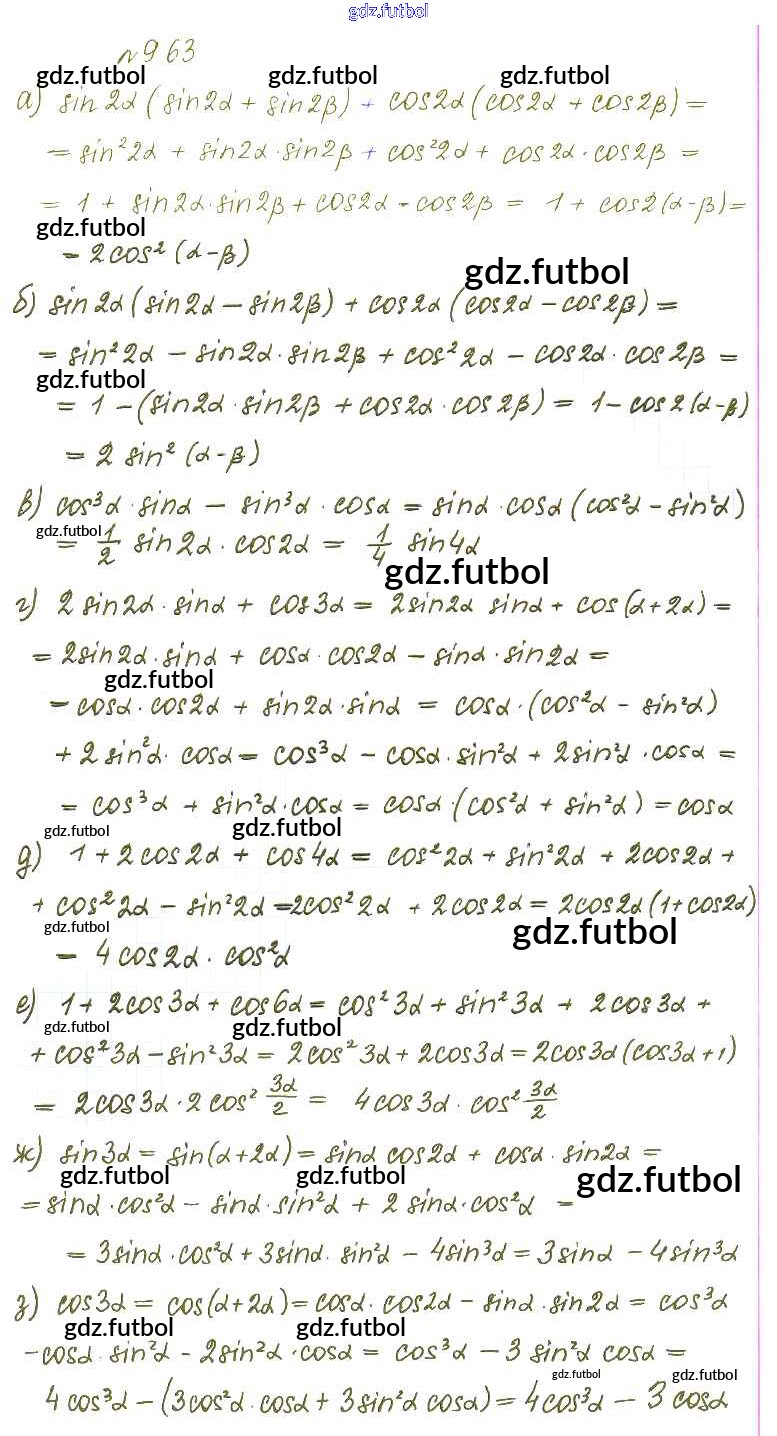 gdz.futbol
№963
gdz.futbol gdz.futbol gdz.futbol
а) sin2α(sin2α + sin2β) + cos2α(cos2α + cos2β) =
= sin²2α + sin2α·sin2β + cos²2α + cos2α·cos2β =
= 1 + sin2α·sin2β + cos2α - cos2β = 1 + cos2(α-β) =
gdz.futbol
= 2cos²(α-β)
gdz.futbol
б) sin2α(sin2α - sin2β) + cos2α(cos2α - cos2β) =
= sin²2α - sin2α·sin2β + cos²2α - cos2α·cos2β =
gdz.futbol
= 1 - (sin2α·sin2β + cos2α·cos2β) = 1 - cos2(α-β)
= 2 sin²(α-β)
в) cos³α·sinα - sin³α·cosα = sinα·cosα(cos²α - sin²α)
gdz.futbol
= 1/2 sin2α·cos2α = 1/4 sin4α
gdz.futbol
г) 2sin2α·sinα + cos3α = 2sin2α sinα + cos(α+2α) =
= 2sin2α·sinα + cosα·cos2α - sinα·sin2α =
gdz.futbol
= cosα·cos2α + sin2α·sinα = cosα·(cos²α - sin²α)
+ 2sin²α·cosα = cos³α - cosα·sin²α + 2sin²α·cosα =
= cos³α + sin²α·cosα = cosα·(cos²α + sin²α) = cosα
gdz.futbol gdz.futbol
д) 1 + 2cos2α + cos4α = cos²2α + sin²2α + 2cos2α +
+ cos²2α - sin²2α = 2cos²2α + 2cos2α = 2cos2α(1+cos2α)
gdz.futbol gdz.futbol
= 4cos2α·cos²α
е) 1 + 2cos3α + cos6α = cos²3α + sin²3α + 2cos3α +
gdz.futbol gdz.futbol
+ cos²3α - sin²3α = 2cos²3α + 2cos3α = 2cos3α(cos3α+1)
= 2cos3α·2cos² 3α/2 = 4cos3α·cos² 3α/2
ж) sin3α = sin(α+2α) = sinα cos2α + cosα·sin2α =
gdz.futbol gdz.futbol gdz.futbol
= sinα·cos²α - sinα·sin²α + 2sinα·cos²α =
= 3sinα·cos²α + 3sinα·sin²α - 4sin³α = 3sinα - 4sin³α
з) cos3α = cos(α+2α) = cosα·cos2α - sinα·sin2α = cos³α
gdz.futbol gdz.futbol
- cosα·sin²α - 2sin²α·cosα = cos³α - 3sin²α cosα =
gdz.futbol gdz.futbol
4cos³α - (3cos²α·cosα + 3sin²α cosα) = 4cos³α - 3cosα